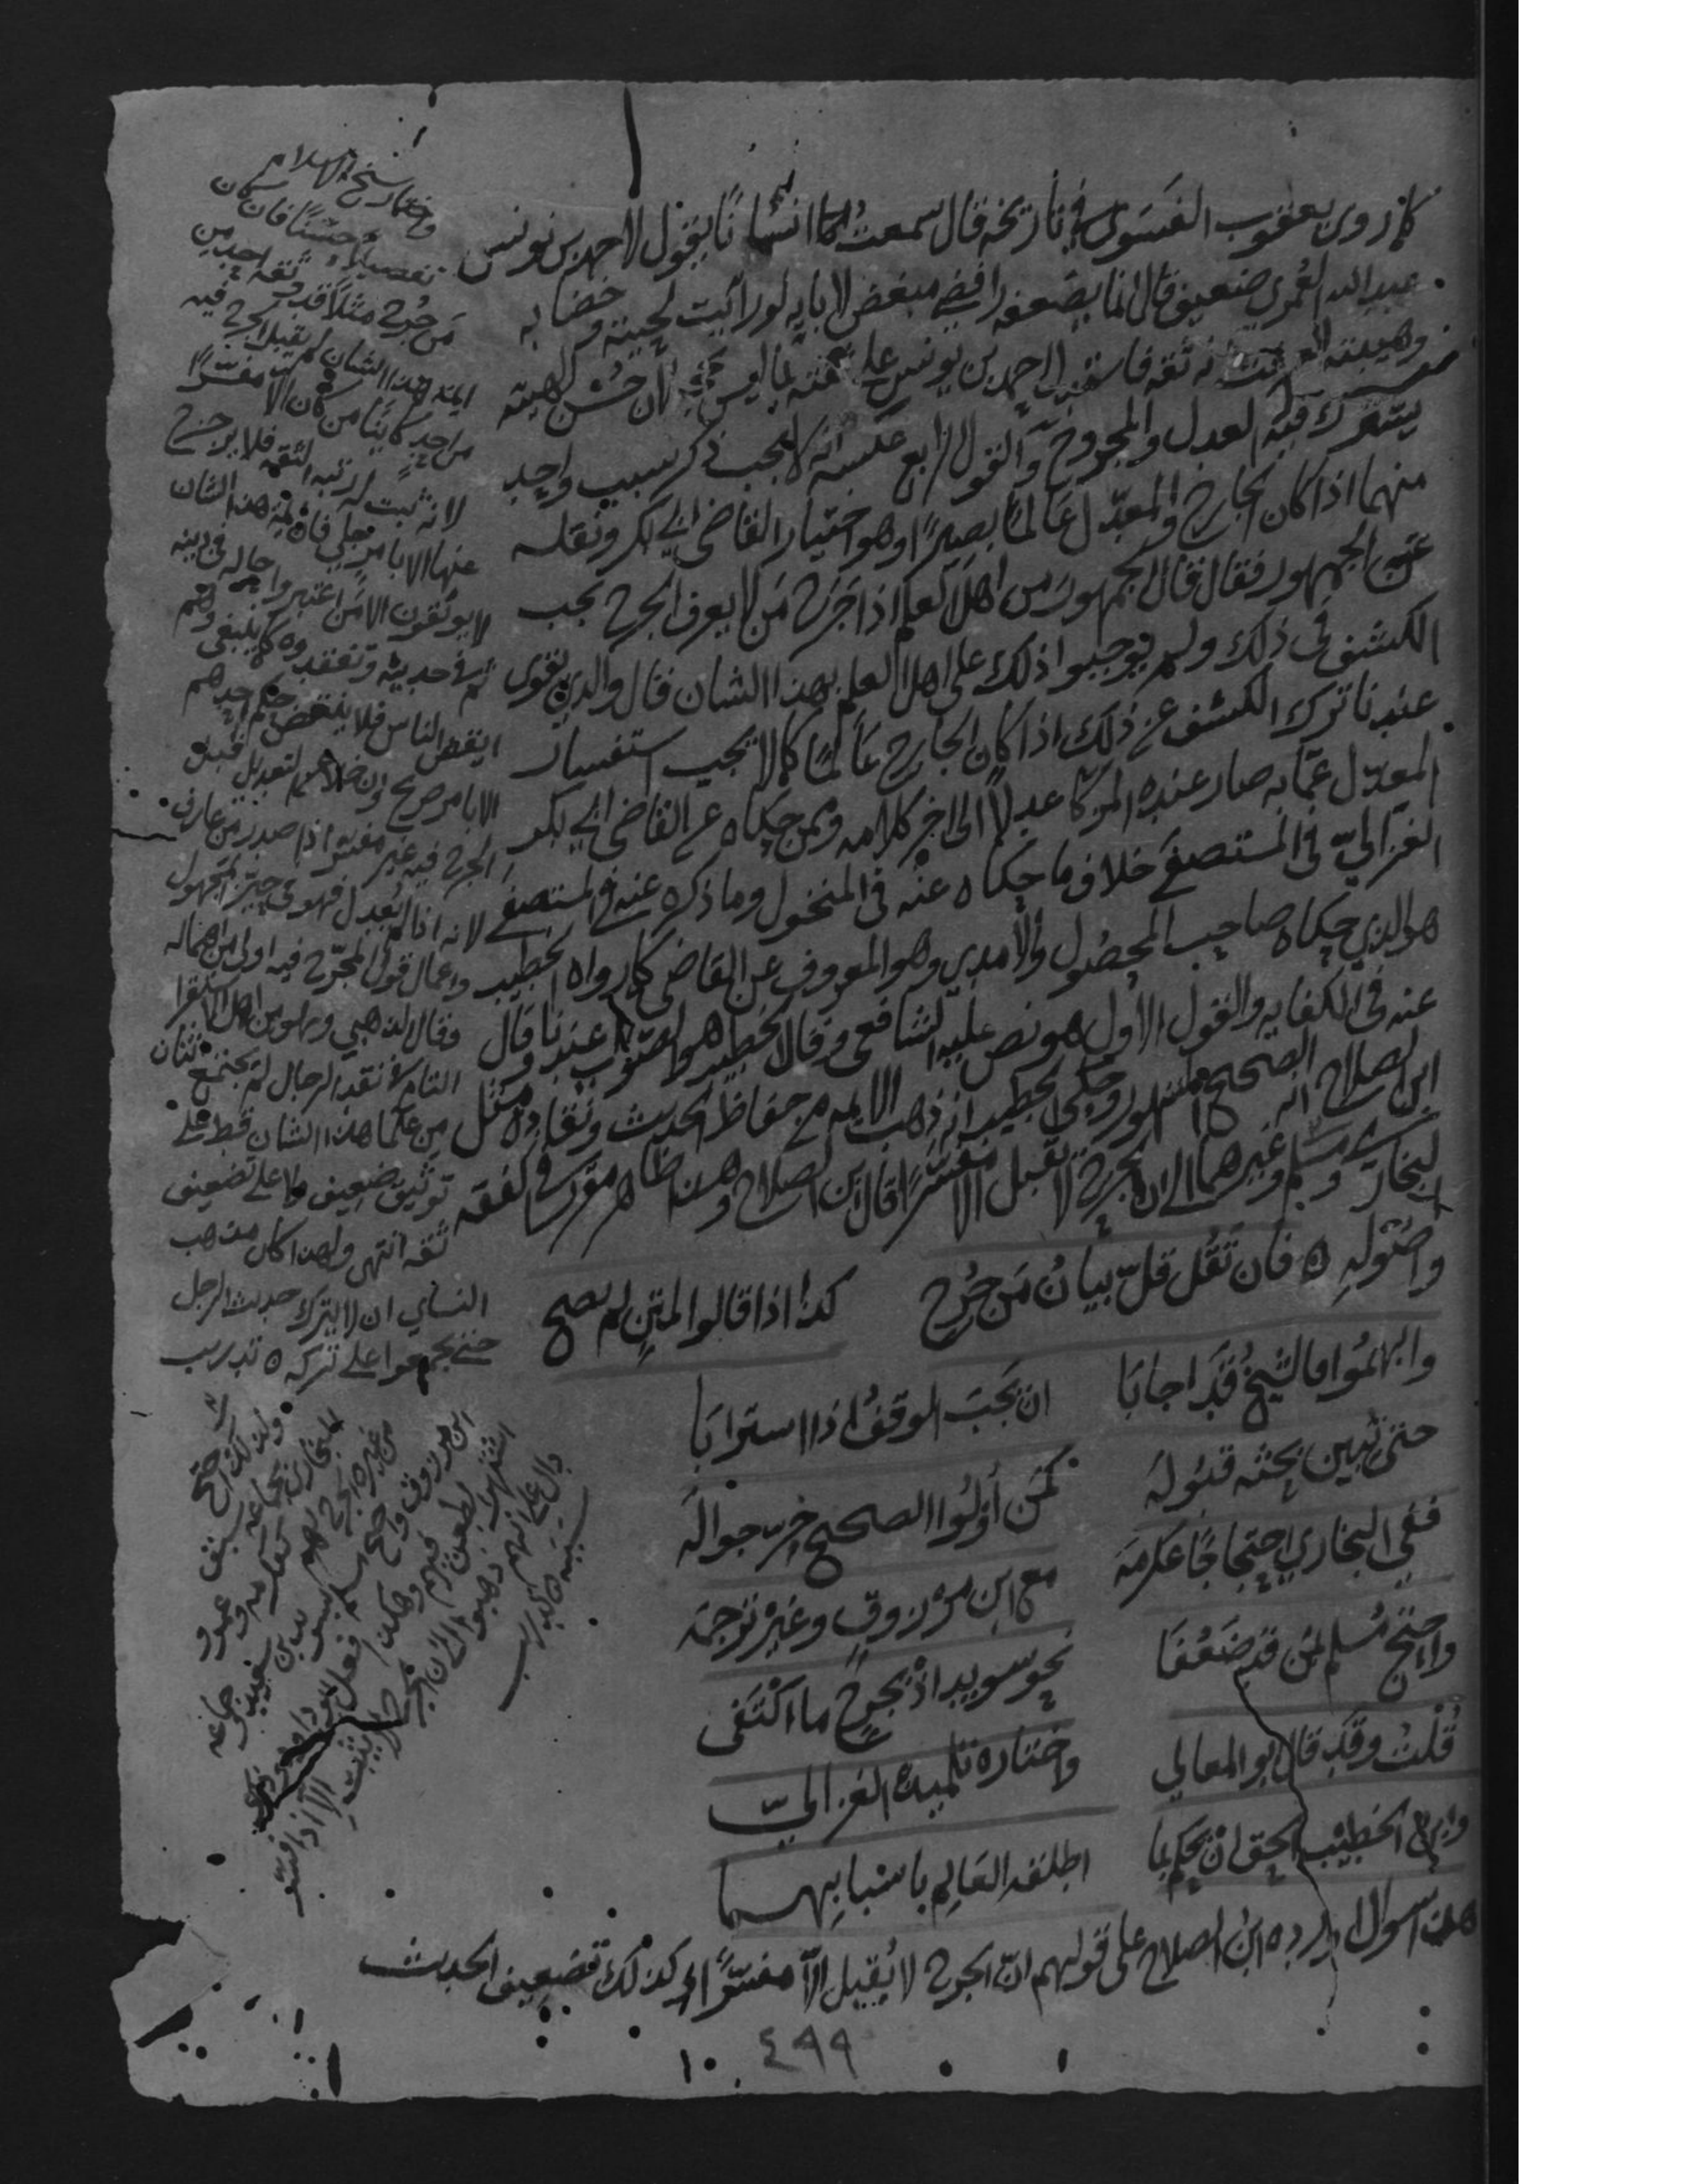 كما روى يعقوب الفسوى في تاريخه قال سمعت انسانا يقول لاحمد بن يونس
عبد الله العُمرى ضعيف قال انما يضعفه رافضى مبغض لابايه لو رايت لحيته وخضابه
وهيئته لعرفت انه ثقه فاستدل احمد بن يونس على ثقته بما ليس بحجه لان حسن الهيئه
يشترك فيه العدل والمجروح والقول الرابع عكسه انه لا يجب ذكر سبب واحد
منهما اذا كان الجارح والمعدّل عالمًا بصيرًا وهو اختيار القاضى ابى بكر ونقله
عن الجمهور فقال قال الجمهور من اهل العلم اذا جَرَح مَن لا يعرف الجرح يجب
الكشف فى ذلك ولم يوجبوا ذلك على اهل العلم بهذا الشان قال والذى يقوى
عندنا ترك الكشف عن ذلك اذا كان الجارح عالمًا كما لا يجب استفسار
المعدّل عمّا به صار عنده المزكا عدلًا الى اخر كلامه وممن حكاه عن القاضى ابى بكر
الغزاليّ فى المستصفى خلاف ما حكاه عنه فى المنخول وما ذكره عنه فى المستصفى
هو الذى حكاه صاحب المحصول والآمدى وهو المعروف عن القاضى كما رواه الخطيب
عنه فى الكفايه والقول الاول هو نص عليه الشافعى وقال الخطيب هو الصواب عندنا وقال
ابن الصلاح انه الصحيح المشهور وحكى الخطيب انه ذهب الايمه من حفاظ الحديث ونقاده مثل
البخارى ومسلم وغيرهما الى ان الجرح لا يقبل الا مفسّرًا قال ابن الصلاح وهذا ظاهر مقرر فى الفقه
واصُوله ه فان تَقُل قلّ بيانُ مَن جُرِح كذا اذا قالوا لمتنٍ لم يصح
وابهمُوا فالشيخُ قَد اجابَا ان يجبَ الوقفُ اذا استرابَا
حتى يُبين بحثه قبُولَهُ كمَن أوْلُوا الصحيح خرّجوا لَهُ
ففى البخارى احتجاجًا عكرمَه مع ابن مرْزوقٍ وغيْر تَرجَمه
واحتج مُسلم بمَن قد ضَعُفَا نحو سويد اذ بجَرحٍ ما اكتَفَى
قُلْتُ وقَد قال ابو المعالي واختاره تلميذه الغزاليّ
وابن الخطيْب الحق ان يُحكم بما اطلقه العَالِم باسْبابِهِما
هذا سوال اورده ابن الصلاح على قولهم انّ الجرح لا يُقبل الّا مفسّرًا وكذلك تضعيف الحديث
٤٩٩
١٠
واختار شيخ الاسلام
تفصيلاً حسَنًا فان كان
مَن جُرح مثلاً قد وثقه احد من
ايمة هذا الشان لم يقبل الجرح فيه
من احد كاينًا من كان الا مفسّرًا
لانه ثبت له رتبه الثقه فلا يزحزح
عنها الا بامر جلي فان ايمة هذا الشان
لا يوثقون الا مَن اعتبروا حاله فى دينه
ثم فى حديثه وتفقدوه كما ينبغى وهم
ايقض الناس فلا ينقض حكم احدهم
الا بامر صريح وان خلا عن التعديل قبل
الجرح فيه غير مفسّر اذا صدر من عارف
لانه اذا لم يُعدل فهو فى حيّز المجهول
واعمال قول المجرّح فيه اولى من اهماله
وقال الذهبى وهو من اهل الاستقرا
التام فى نقد الرجال لم يجتمع اثنان
من علما هذا الشان قط على
توثيق ضعيف ولا على تضعيف
ثقه انتهى ولهذا كان مذهب
النساى ان لا يترك حديث الرجل
حتى يجمعوا على تركه ه تدريب
ولذلك احتج
البخارى بجماعه سبق
من غيره الجرح لهم
كعكرمه وعمرو
ابن مرزوق واحتج مسلم
بسويد بن سعيد وجماعه
اشتهر الطعن فيهم
وهكذا فعل ابو داود وذلك
دال على انهم ذهبوا الى ان الجرح لا يثبت الا اذا فسّر
سببه ه تدريب